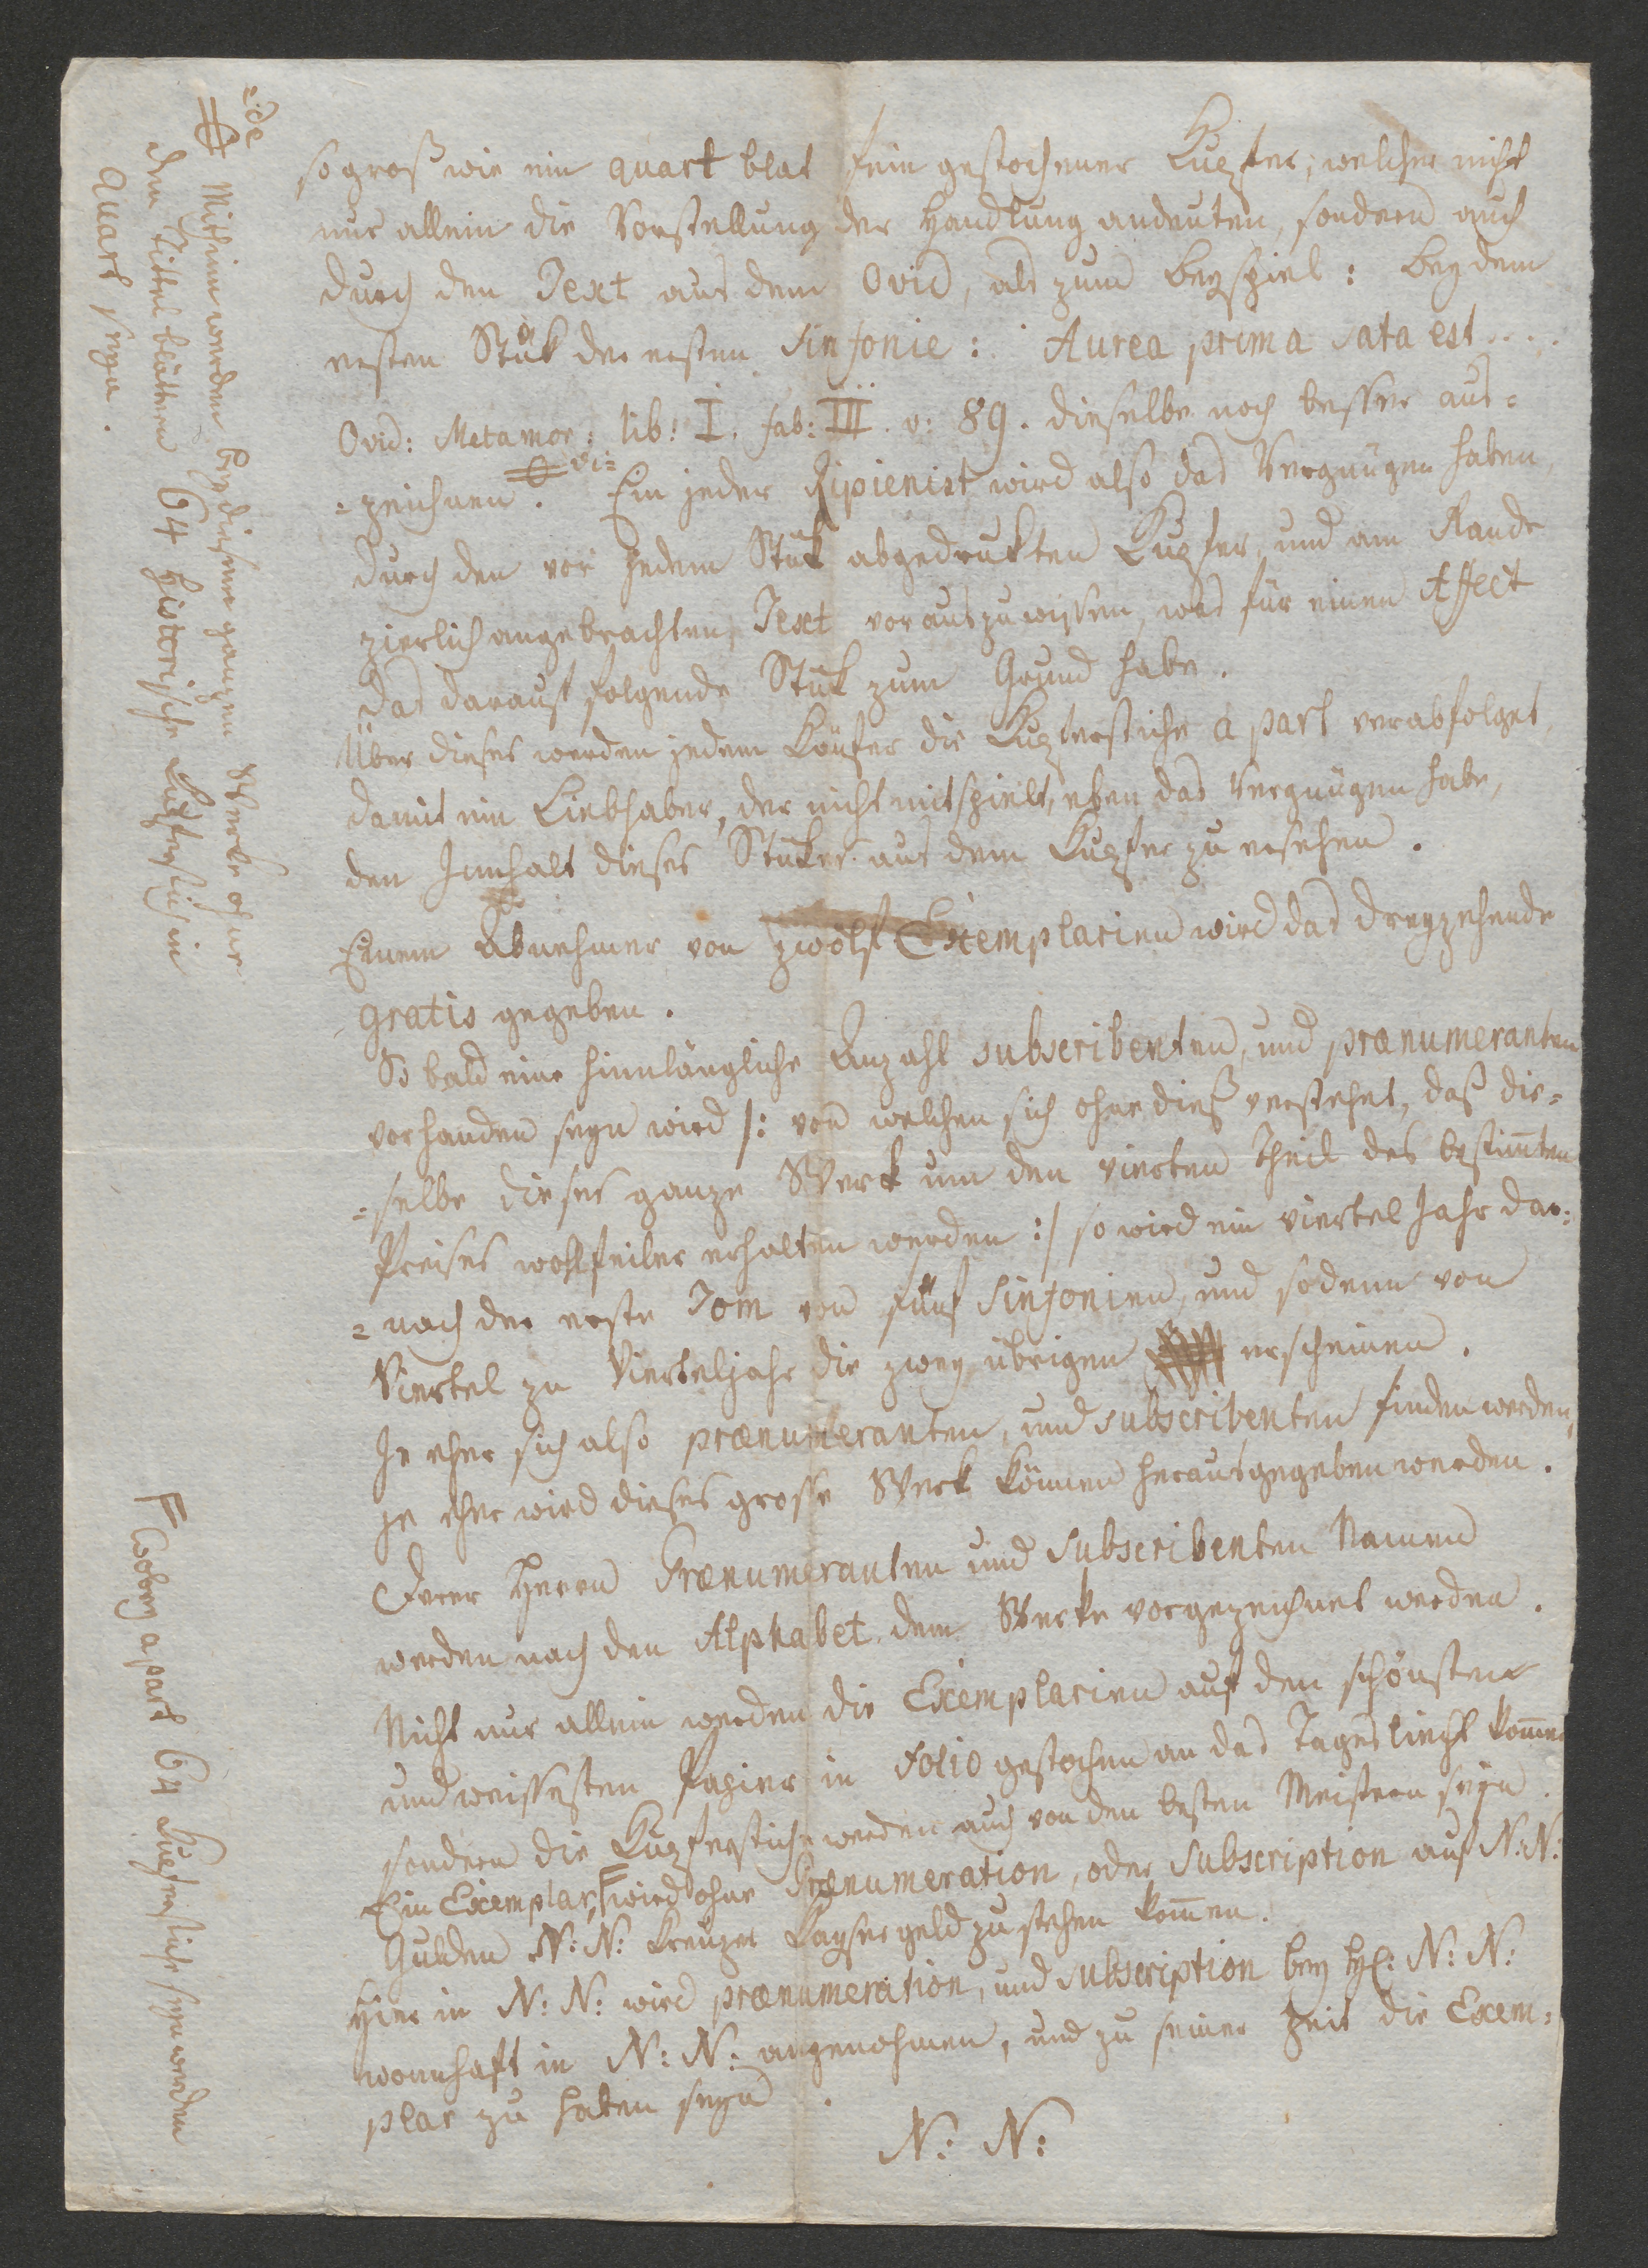 so groß wie ein quart blat fein gestochener Kupfer; welcher nicht
nur allein die Vorstellung der Handlung andeuten, sondern auch
durch den Text aus dem Ovid, als zum Beyspiel: bey dem
ersten Stük der ersten Sinfonie: Aurea prima sata est....
Ovid: Metamor: lib: I. fab: III. v: 89. dieselbe noch besser aus=
=zeichnen. vi= Ein jeder Ripienist wird also das Vergnügen haben,
durch den vor jedem Stük abgedrukten Kupfer, und am Rande
zierlich angebrachten Text voraus zu wissen, was für einen Affect
das darauf folgende Stük zum Grund habe.
Über dieses werden jedem Käufer die Kupferstiche a part verabfolget,
damit ein Liebhaber, der nicht mitspielt, eben das Vergnügen habe,
den Innhalt dieses Stükes aus dem Kupfer zu ersehen.
Einem Abnehmer von zwölf Exemplarien wird das dreyzehende
gratis gegeben.
So bald eine hinlängliche Anzahl subscribenten, und prænumeranten
vorhanden seyn wird /: von welchen sich ohne dieß verstehet, daß die=
=selbe dieses ganze Werk um den vierten Theil des bestim̅ten
Preises wohlfeiler erhalten werden :/ so wird ein viertel Jahr dar=
=nach der erste Tom von fünf Sinfonien, und sodenn von
Viertel zu Vierteljahr die zwey übrigen erscheinen.
Je eher sich also prænumeranten, und subscribenten finden werden,
je eher wird dieses grosse Werk können herausgegeben werden.
Derer Herrn Prænumeranten und Subscribenten Namen
werden nach den Alphabet dem Werke vorgezeichnet werden.
Nicht nur allein werden die Exemplarien auf den schönsten
und weissesten Papier in Folio gestochen an das Tageslicht kom̅en
sondern die Kupferstiche werden auch von den besten Meistern seyn.
Ein Exemplar, F wird ohne Prænumeration, oder Subscription auf N: N:
Gulden N: N: Kreuzer Kayser geld zu stehen kom̅en.
Hier in N: N: wird prænumeration, und subscription bey H: N: N:
wonnhaft in N: N: angenohmen, und zu seiner Zeit die Exem=
plar zu haben seyn.
N: N:
=de
Mithin werden bey diesem ganzen Werke ohne
den Tittelblättern 64 historische Kupferstich in
Quart seyn.
F Wobey apart 64 Kupferstich seyn werden